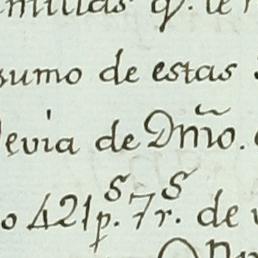 millas q. le
sumo de estas
levia de Dm̃o.
o 421 p.ˢ 7 r.ˢ de